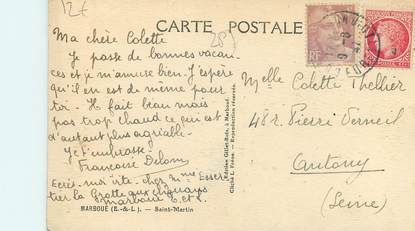 12€
CARTE POSTALE
28
Ma chère Colette
Je passe de bonnes vacan-
ces et je m'amuse bien. J'espère
qu'il en est de même pour
toi. Il fait beau mais
pas trop chaud ce qui est
d'autant plus agréable.
Je t'embrasse
Françoise
Ecris-moi vite. chez Mme
tier La Grotte aux
Marboué E.et L.
MARBOUÉ (E.-&-L.) — Saint-Martin
Edition Gillet-Bois, à Marboué
Cliché L. Frère. — Reproduction réservée.
RF
Melle Colette Thellier
48 r. Pierre
Antony
(Seine)